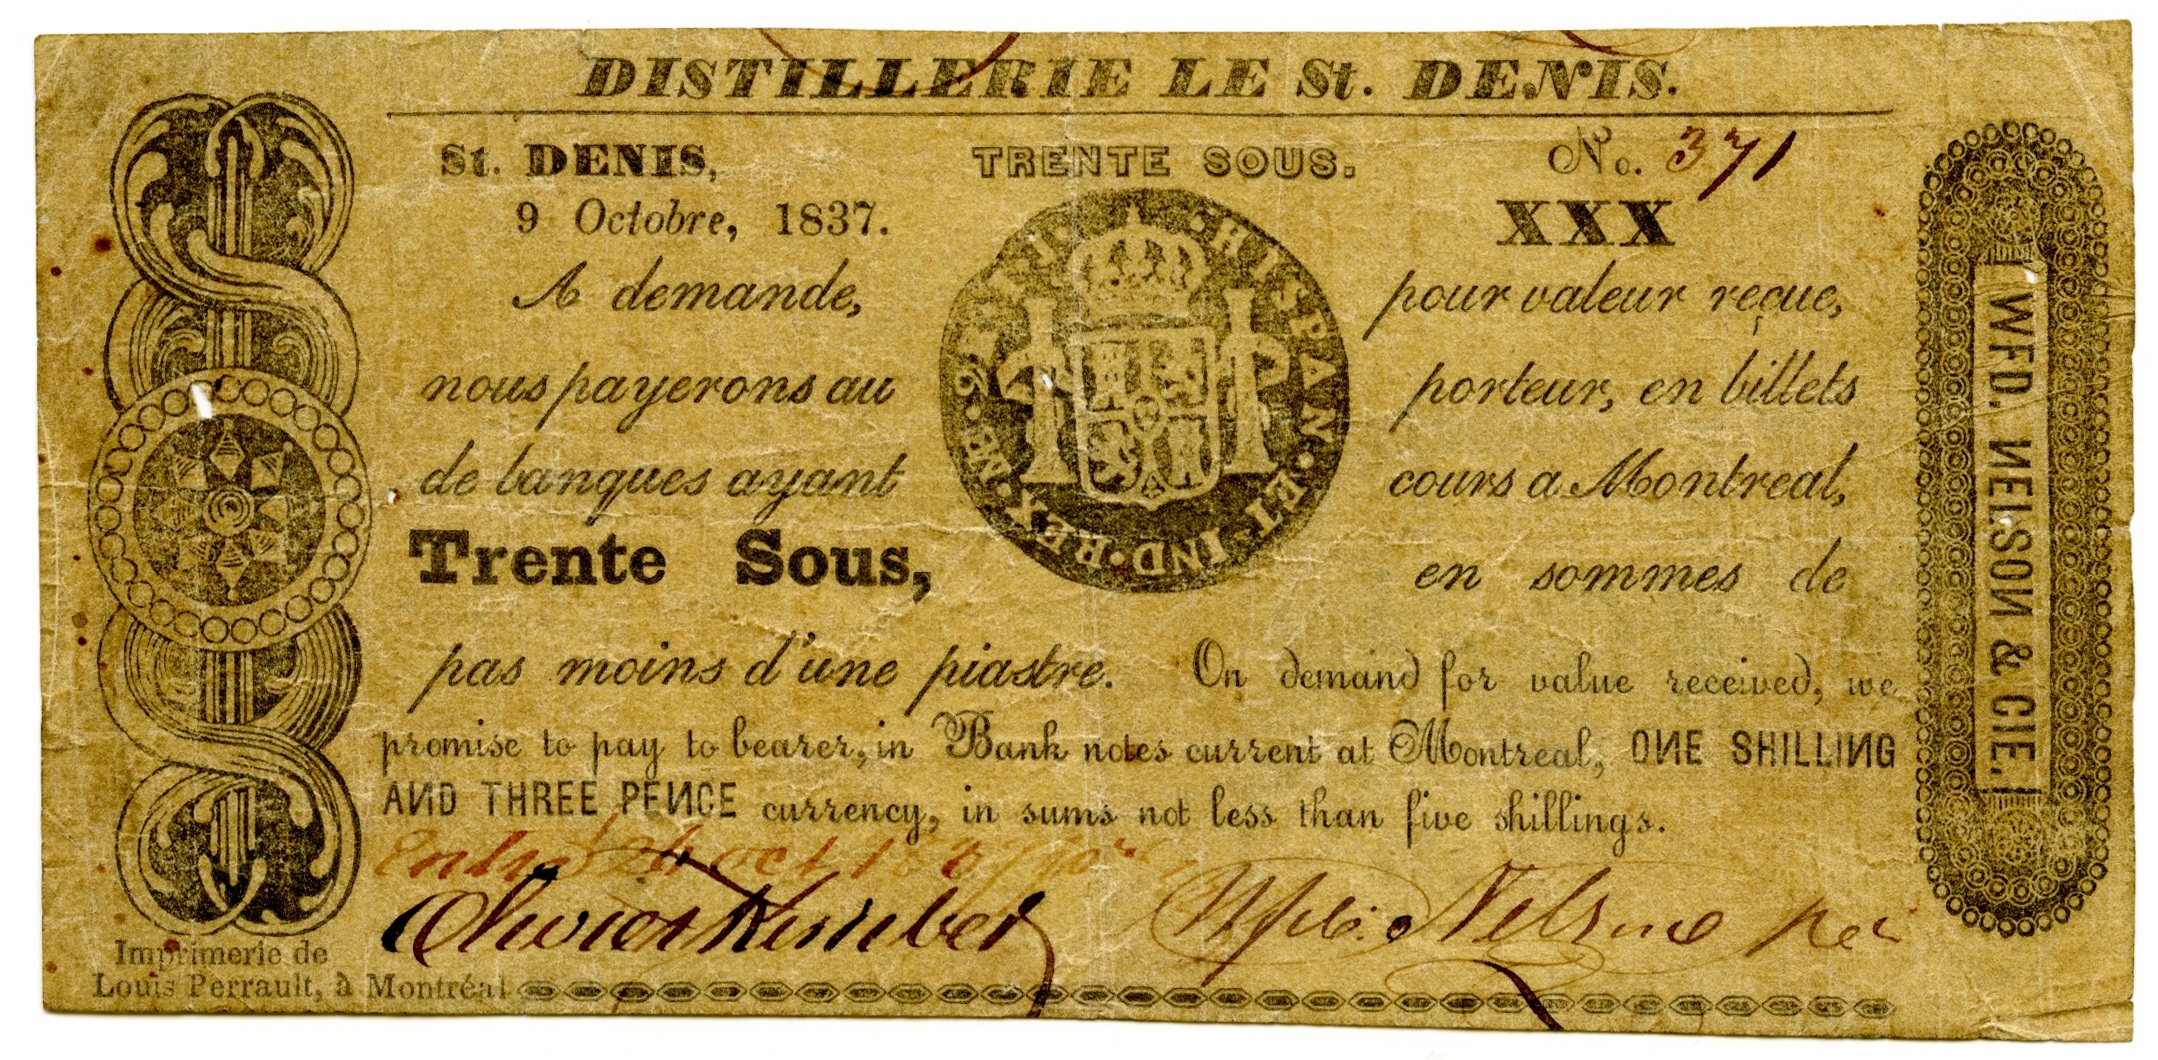 DISTILLERIE LE St. DENIS.
St. DENIS, TRENTE SOUS. No. 371
9 Octobre, 1837. XXX
A demande, pour valeur reçue,
nous payerons au porteur, en billets
de banques ayant cours a Montreal,
Trente Sous, en sommes de
pas moins d'une piastre. On demand for value received, we
promise to pay to bearer, in Bank notes current at Montreal, ONE SHILLING
AND THREE PENCE currency, in sums not less than five shillings.
HISPAN·ET·IND·REX·
oct
Nelson
Imprimerie de
Louis Perrault, à Montréal
WFD. NELSON & CIE.